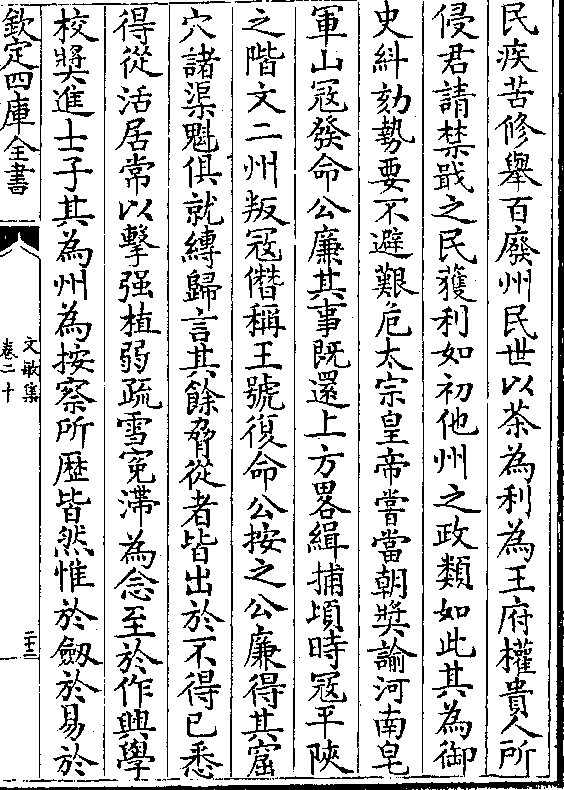 民疾苦修舉百廢州民世以茶為利為王府權貴人所
侵君請禁戢之民獲利如初他州之政類如此其為御
史糾劾勢要不避艱危太宗皇帝嘗當朝奬諭河南皂
軍山冦發命公廉其事既還上方畧緝捕頃時冦平陜
之階文二州叛冦僭稱王號復命公按之公廉得其窟
穴諸渠魁俱就縛歸言其餘脅從者皆出於不得已悉
得從活居常以擊强植弱疏雪寃滯為念至於作興學
校奬進士子其為州為按察所歴皆然惟於劒於易於
欽定四庫全書
文敏集
卷二十
二十三